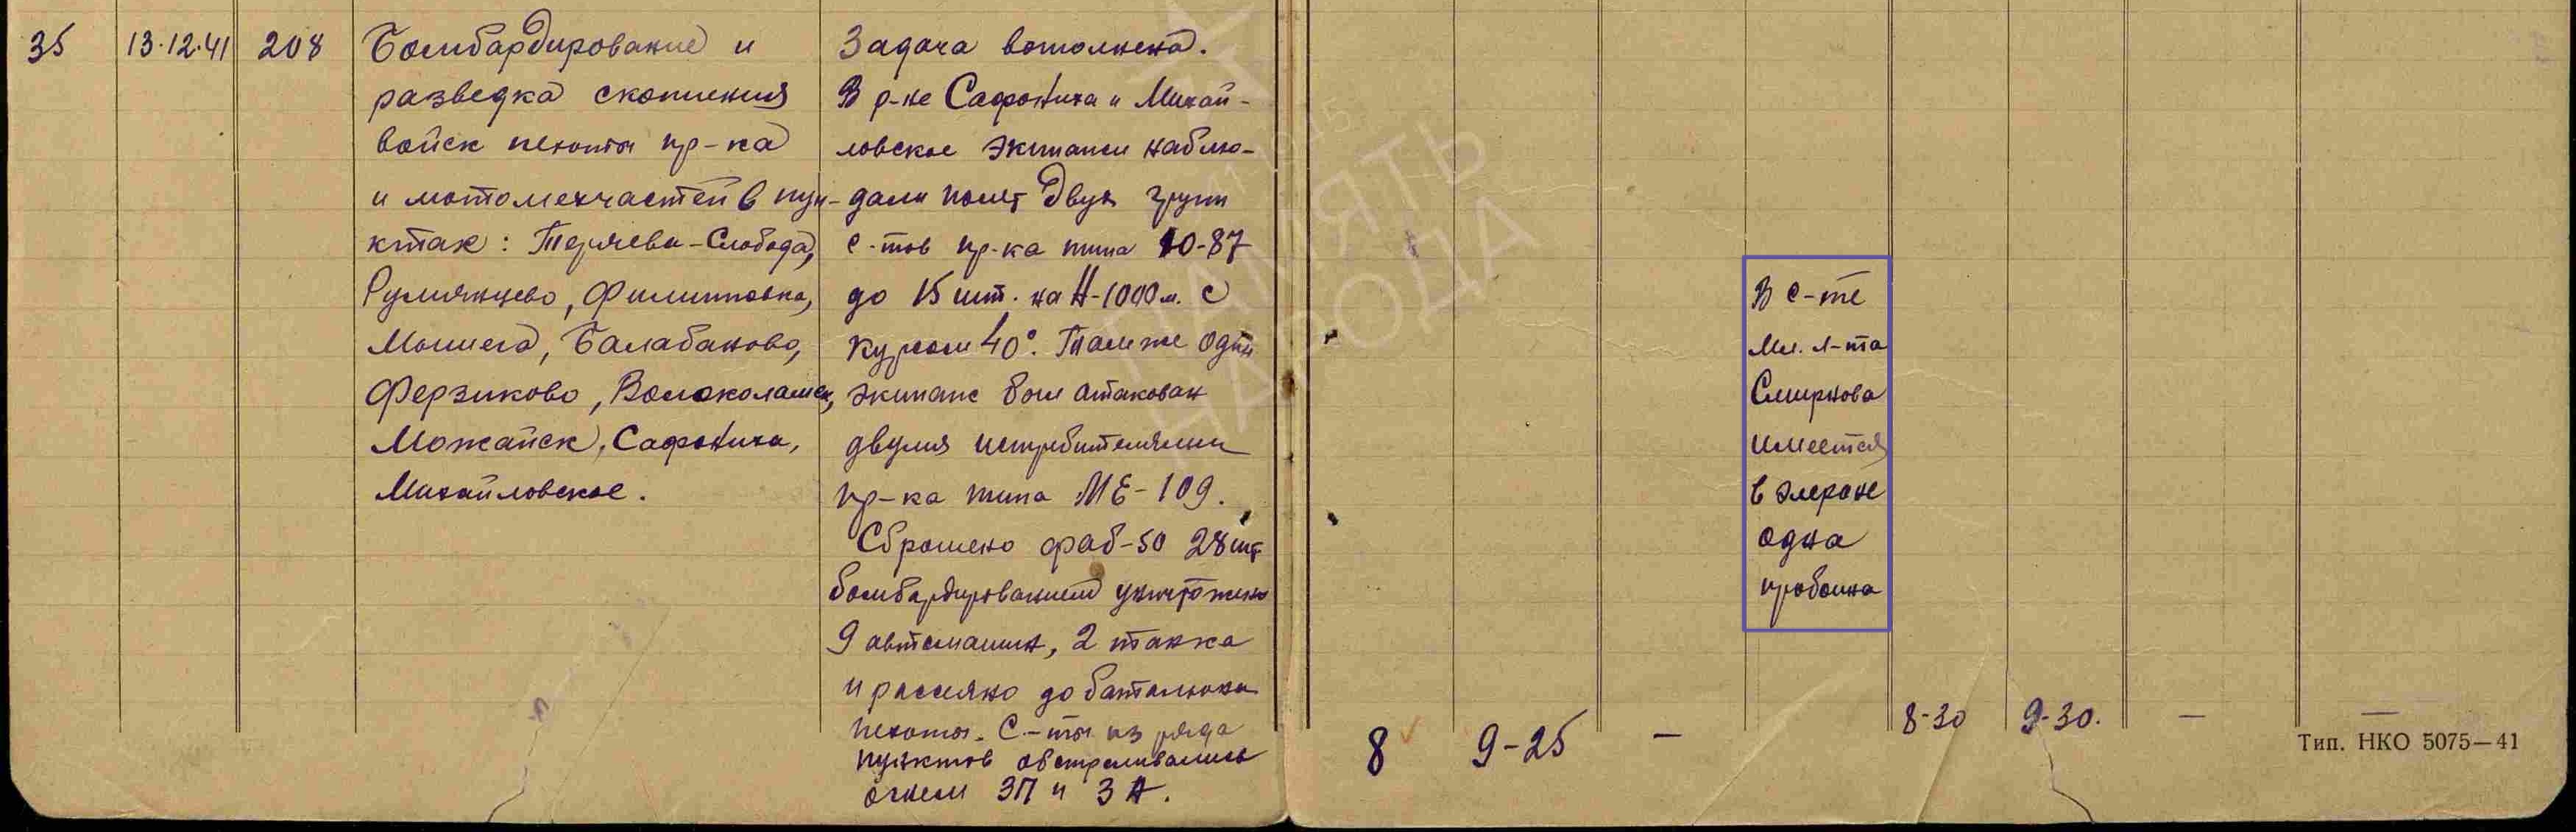 35 13.12.41 208
Бомбардирование и
разведка скопления
войск пехоты пр-ка
и мотомехчастей в пун-
ктах: Теряева-Слобода,
Румянцево, Филипповка,
Балабаново,
Ферзиково, Волоколамск,
Можайск, Сафатиха,
Михайловское.
Задача выполнена.
В р-не Сафатиха и Михай-
ловское экипажи наблю-
дали полет двух групп
с-тов пр-ка типа Ю-87
до 15 шт. на Н-1000 м. с
курсом 40°. Там же один
экипаж был атакован
двумя истребителями
пр-ка типа МЕ-109.
Сброшено фаб-50 28 шт
бомбардированием уничтожено
9 автомашин, 2 танка
и рассеяно до батальона
пехоты. С-ты из ряда
пунктов обстреливались
огнем ЗП и ЗА.
8 9-25 —
В с-те
Мл. л-та
Смирнова
имеется
в элероне
одна
пробоина
8-30 9-30. — —
Тип. НКО 5075—41
ПАМЯТЬ
НАРОДА